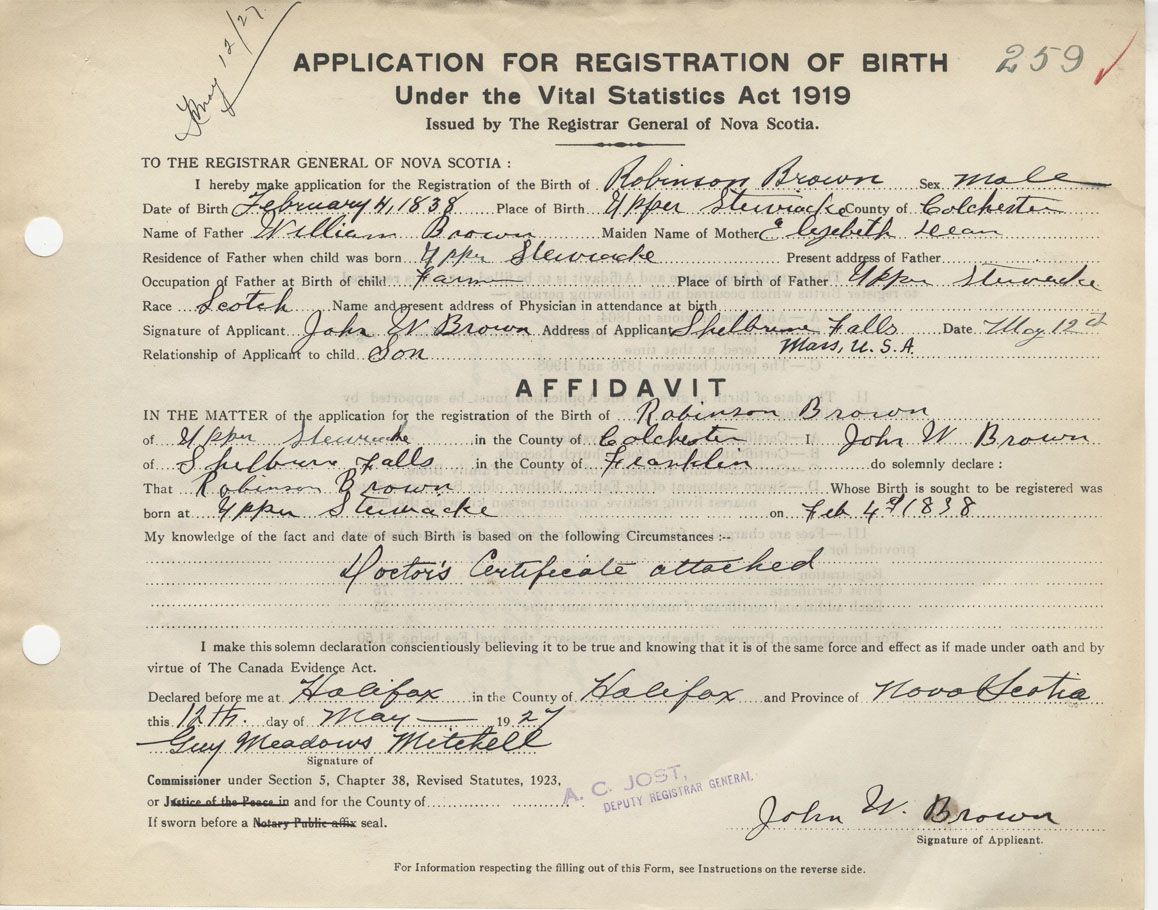 May 12/27.
259
APPLICATION FOR REGISTRATION OF BIRTH
Under the Vital Statistics Act 1919
Issued by The Registrar General of Nova Scotia.
TO THE REGISTRAR GENERAL OF NOVA SCOTIA :
I hereby make application for the Registration of the Birth of Robinson Brown Sex male
Date of Birth February 4, 1838 Place of Birth Upper Stewiacke County of Colchester
Name of Father William Brown Maiden Name of Mother Elizebeth Dean
Residence of Father when child was born Upper Stewiacke Present address of Father
Occupation of Father at Birth of child Farm Place of birth of Father Upper Stewiacke
Race Scotch Name and present address of Physician in attendance at birth
Signature of Applicant John W Brown Address of Applicant Shelburne Falls Date May 12th
Relationship of Applicant to child Son Mass, U.S.A.
AFFIDAVIT
IN THE MATTER of the application for the registration of the Birth of Robinson Brown
of Upper Stewiacke in the County of Colchester I, John W Brown
of Shelburne Falls in the County of Franklin do solemnly declare :
That Robinson Brown Whose Birth is sought to be registered was
born at Upper Stewiacke on Feb 4th 1838
My knowledge of the fact and date of such Birth is based on the following Circumstances :--
Doctor's Certificate attached
I make this solemn declaration conscientiously believing it to be true and knowing that it is of the same force and effect as if made under oath and by
virtue of The Canada Evidence Act.
Declared before me at Halifax in the County of Halifax and Province of Nova Scotia
this 12th. day of May 1927
Guy Meadows Mitchell
Signature of
Commissioner under Section 5, Chapter 38, Revised Statutes, 1923,
or Justice of the Peace in and for the County of
If sworn before a Notary Public affix seal.
A. C. JOST,
DEPUTY REGISTRAR GENERAL
John W. Brown
Signature of Applicant.
For Information respecting the filling out of this Form, see Instructions on the reverse side.